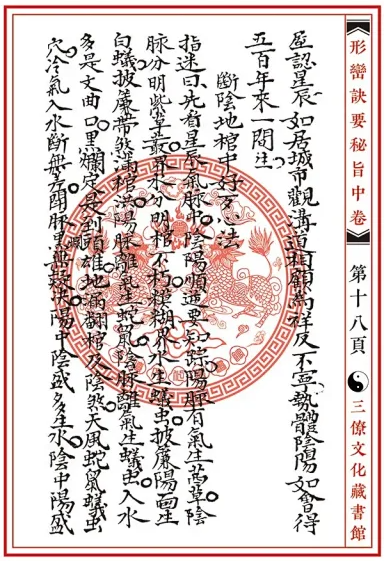 形巒訣要秘旨中卷 第十八頁 三僚文化藏書館
屋認星辰如居城市觀溝道相顧為祥反不寧勢體陰陽如會得
五百年來一間注
斷陰地棺中好歹心法
指迷曰先看星辰氣脉中陰陽順逆要知踪陽脉有氣生蒿草陰
脉分明紫草叢界水分明棺不朽糢糊界水生蟻虫披簾陽面生
白蟻披簾帶煞滿棺洪陽脉離氣生蛇鼠陰脉離氣生蟻虫入水
多是文曲口黑爛定是到頭雄地滿翻棺及陰煞天風蛇鼠蟻虫
穴冷氣入水斷無差脉黑無疑决陽中陰盛多生水陰中陽盛